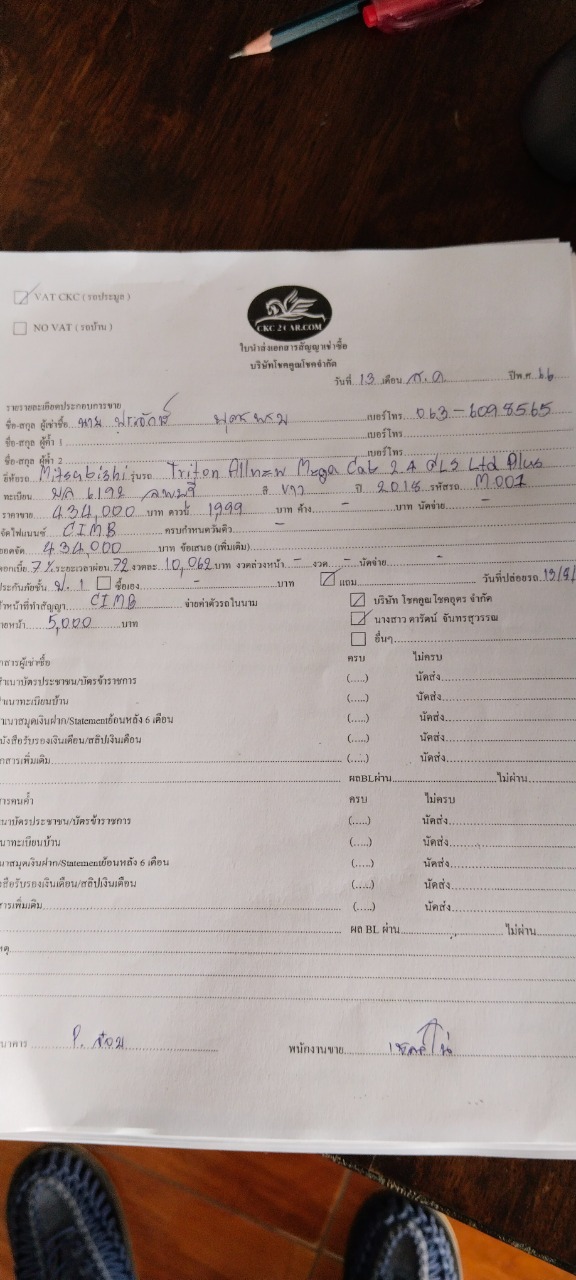 VAT CKC ( รถประมูล )
NO VAT ( รถบ้าน )
CKC 2 CAR.COM
ใบนำส่งเอกสารสัญญาเช่าซื้อ
บริษัทโชคคูณโชคจำกัด
วันที่ 13 เดือน ส.ค. ปีพ.ศ. 66
รายรายละเอียดประกอบการขาย
ชื่อ-สกุล ผู้เช่าซื้อ นาย เบอร์โทร. 063-6098565
ชื่อ-สกุล ผู้ค้ำ 1 เบอร์โทร.
ชื่อ-สกุล ผู้ค้ำ 2 เบอร์โทร
Mitsubishi รุ่นรถ Triton Allnew Mega Cab 2.4 GLS Ltd Plus
ทะเบียน 6192 ลพบุรี สี ขาว ปี 2018 รหัสรถ M001
ราคาขาย 434,000 บาท ดาวน์ 1,999 บาท ค้าง - บาท นัดจ่าย -
จัดไฟแนนซ์ CIMB ครบกำหนดวันคิว -
ยอดจัด 434,000 บาท ข้อเสนอ (เพิ่มเติม)
ดอกเบี้ย 7% ระยะเวลาผ่อน 72 งวดละ 10,062 บาท งวดล่วงหน้า - งวด - นัดจ่าย -
ประกันภัยชั้น ป. 1 ซื้อเอง - บาท แถม วันที่ปล่อยรถ
เจ้าหน้าที่ทำสัญญา CIMB จ่ายค่าตัวรถในนาม บริษัท โชคคูณโชคอุดร จำกัด
5,000 บาท นางสาว ดารัตน์ จันทรสุวรรณ
อื่นๆ
เอกสารผู้เช่าซื้อ ครบ ไม่ครบ
สำเนาบัตรประชาชน/บัตรข้าราชการ (.....) นัดส่ง
สำเนาทะเบียนบ้าน (.....) นัดส่ง
สำเนาสมุดเงินฝาก/Statementย้อนหลัง 6 เดือน (.....) นัดส่ง
หนังสือรับรองเงินเดือน/สลิปเงินเดือน (.....) นัดส่ง
เอกสารเพิ่มเติม (.....) นัดส่ง
ผลBLผ่าน ไม่ผ่าน
สารคนค้ำ ครบ ไม่ครบ
นาบัตรประชาชน/บัตรข้าราชการ (.....) นัดส่ง
นาทะเบียนบ้าน (.....) นัดส่ง
นาสมุดเงินฝาก/Statementย้อนหลัง 6 เดือน (.....) นัดส่ง
สือรับรองเงินเดือน/สลิปเงินเดือน (.....) นัดส่ง
สารเพิ่มเติม (.....) นัดส่ง
ผล BL ผ่าน ไม่ผ่าน
นาคาร พนักงานขาย